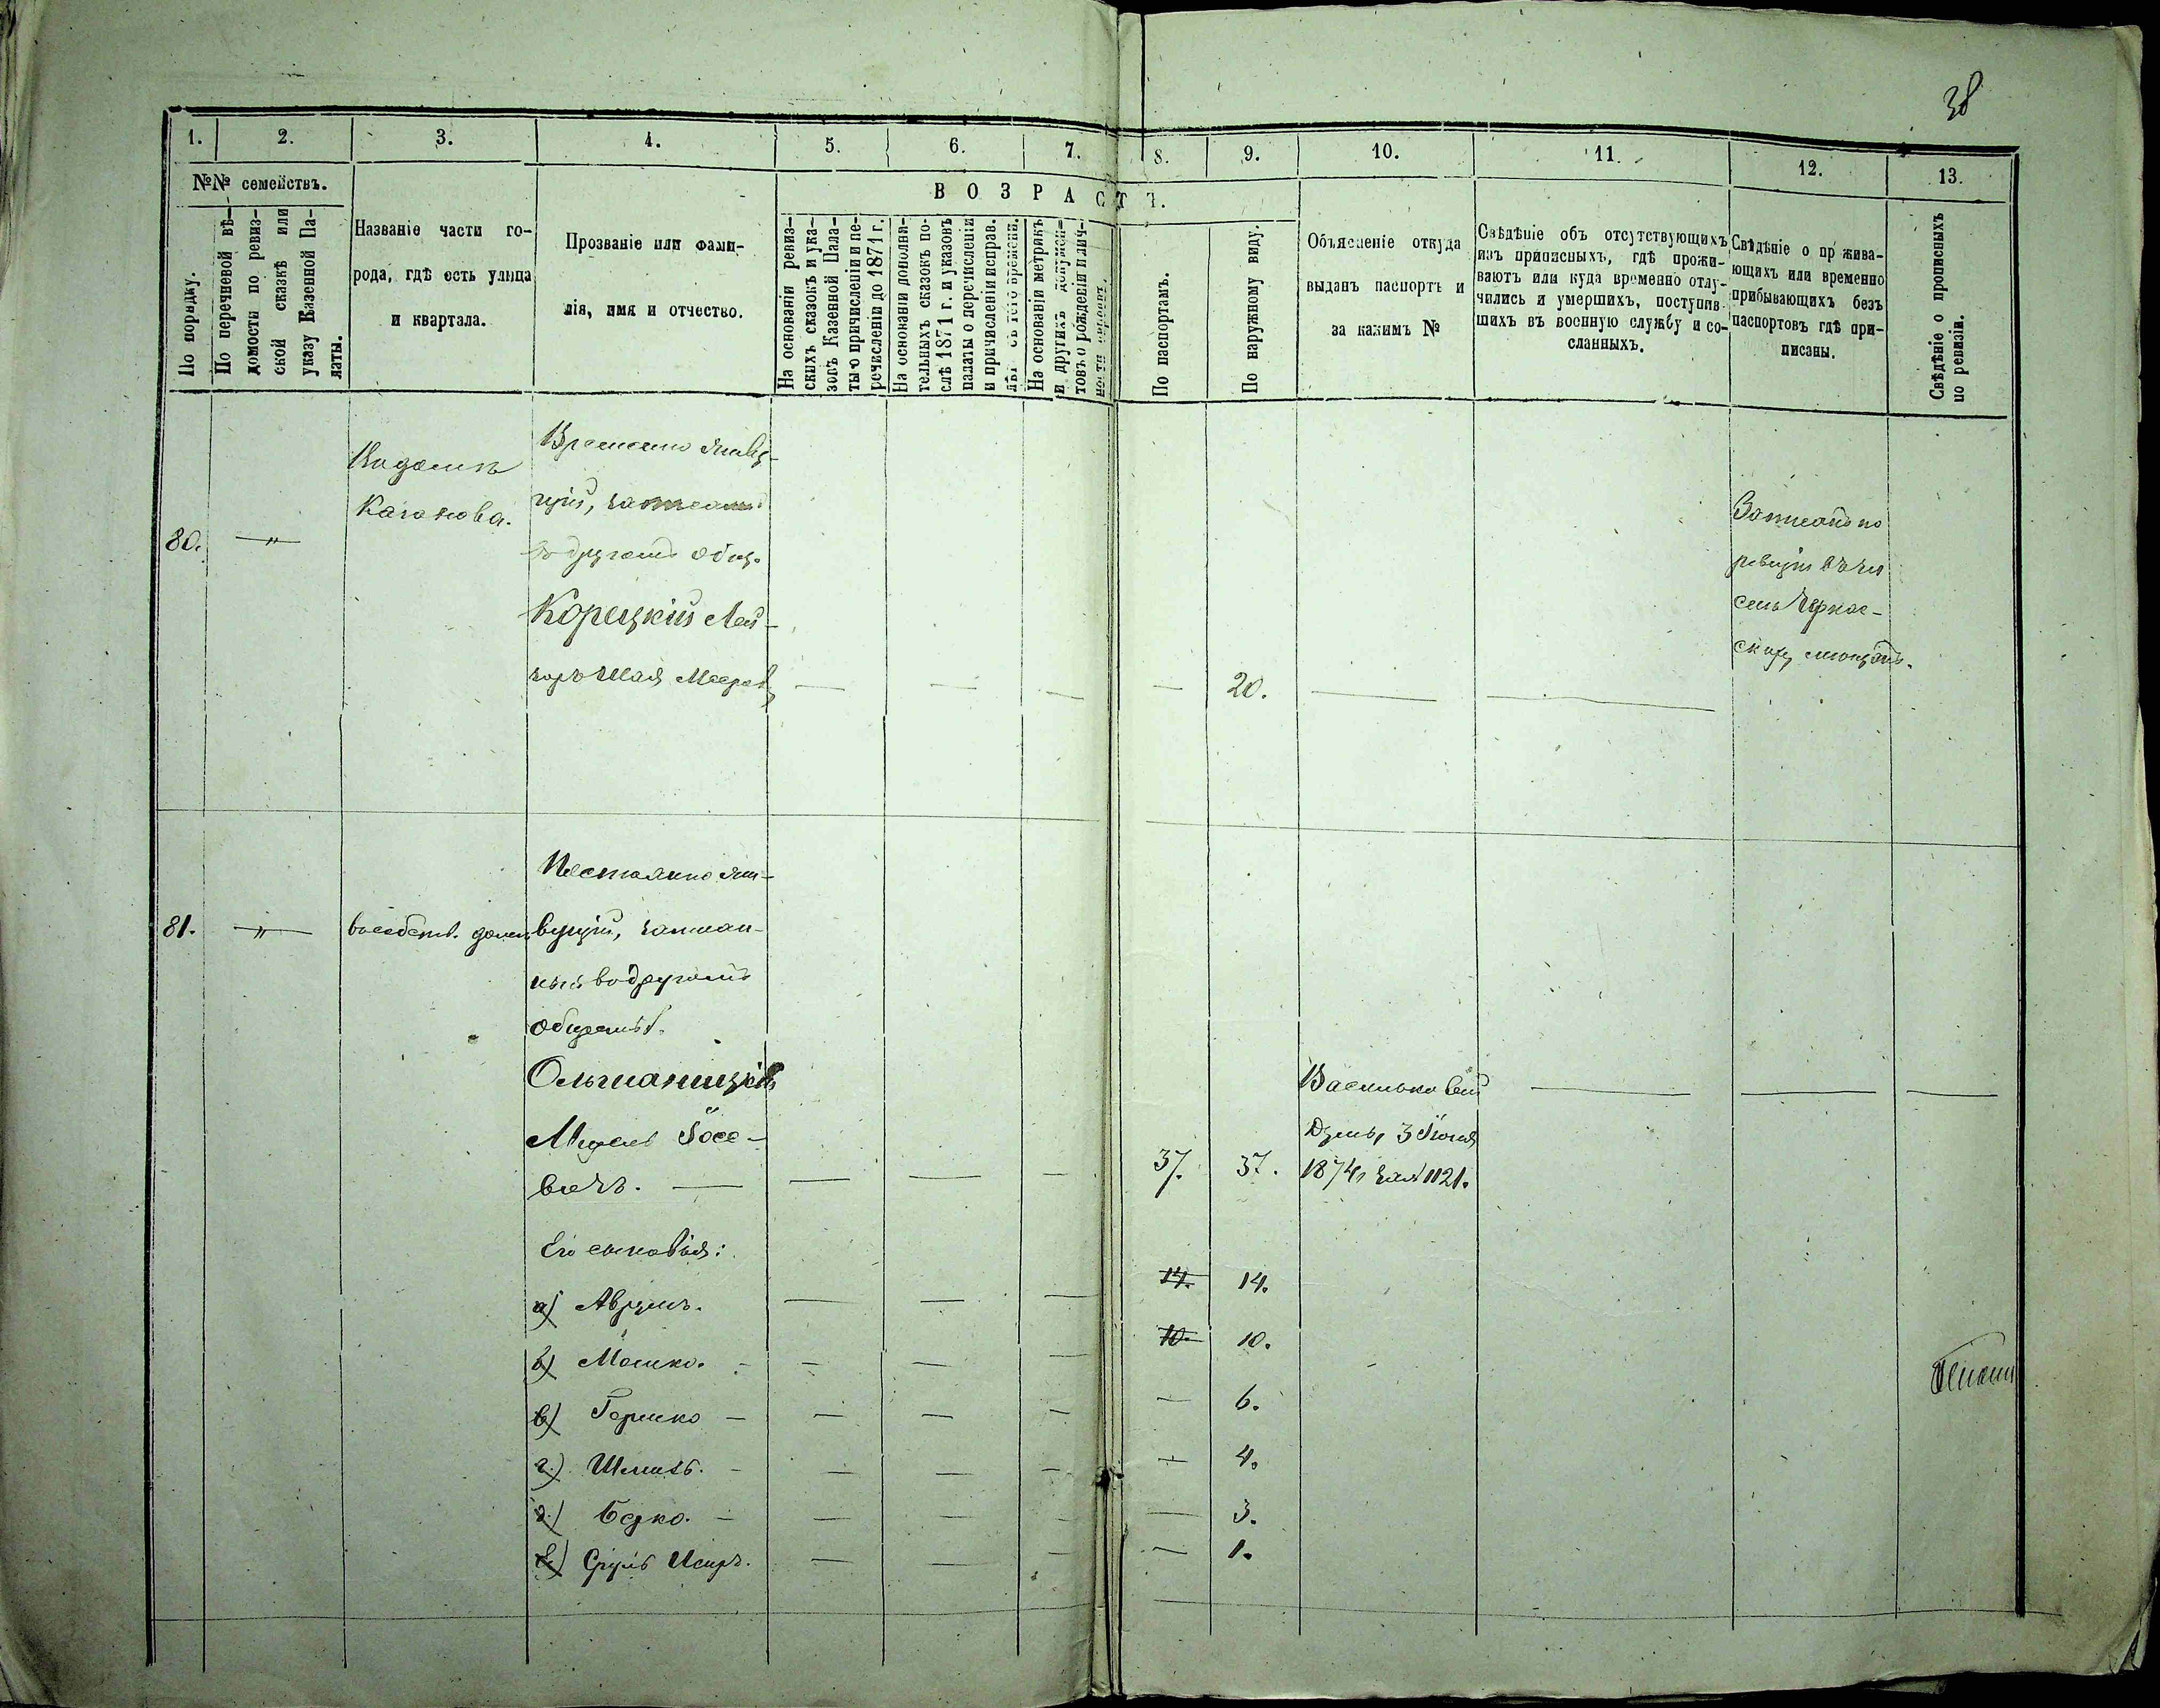 38
1. 2. 3. 4. 5. 6. 7. 8. 9. 10. 11. 12. 13.
№№ семействъ.
По порядку.
По перечневой вѣ-
домости по ревиз-
ской сказкѣ или
указу Казенной Па-
латы.
Названіе части го-
рода, гдѣ есть улица
и квартала.
Прозваніе или фами-
лія, имя и отчество.
ВОЗРАСТЪ.
На основаніи ревиз-
скихъ сказокъ и ука-
зовъ Казеной Пала-
ты о причисленіи и пе-
речисленіи до 1871 г.
На основаніи дополни-
тельныхъ сказокъ по-
слѣ 1871 г. и указовъ
палаты о перечисленіи
и причисленіи исправ.
лѣт съ того времени.
На основаніи метрикъ
и другихъ докумен-
товъ о рожденіи и лич-
По паспортамъ.
По наружному виду.
Объясненіе откуда
выданъ паспортъ и
за какимъ №
Свѣдѣніе объ отсутствующихъ
изъ приписныхъ, гдѣ прожи-
ваютъ или куда временно отлу-
чились и умершихъ, поступив-
шихъ въ военную службу и со-
сланныхъ.
Свѣдѣніе о прожива-
ющихъ или временно
прибывающихъ безъ
паспортовъ гдѣ при-
писаны.
Свѣдѣніе о прописныхъ
по ревизіи.
80. —"—
Качанова.
Временно живу-
щій,
въ другомъ общ.
Корецкій Лей-
зоръ Шая Мееров
— — — — 20. — —
Записанъ по
ревизіи
81. —"—
въ собств. домѣ
Постоянно жи-
вущій, записан-
ный въ другомъ
обществ.
Ольшаницкій
Іосе-
вичъ. — — — — 37. 37.
Васильков
Думы, 3 Іюня
1874 г. за № 1121.
— — —
Его сыновья:
а) Аврумъ. — — — 14. 14.
б) Мошко. — — — — 10. 10.
в) Гершко — — — — — 6.
г) — — — — — 4.
д) Берко. — — — — — 3.
е) Сруль — — — — 1.